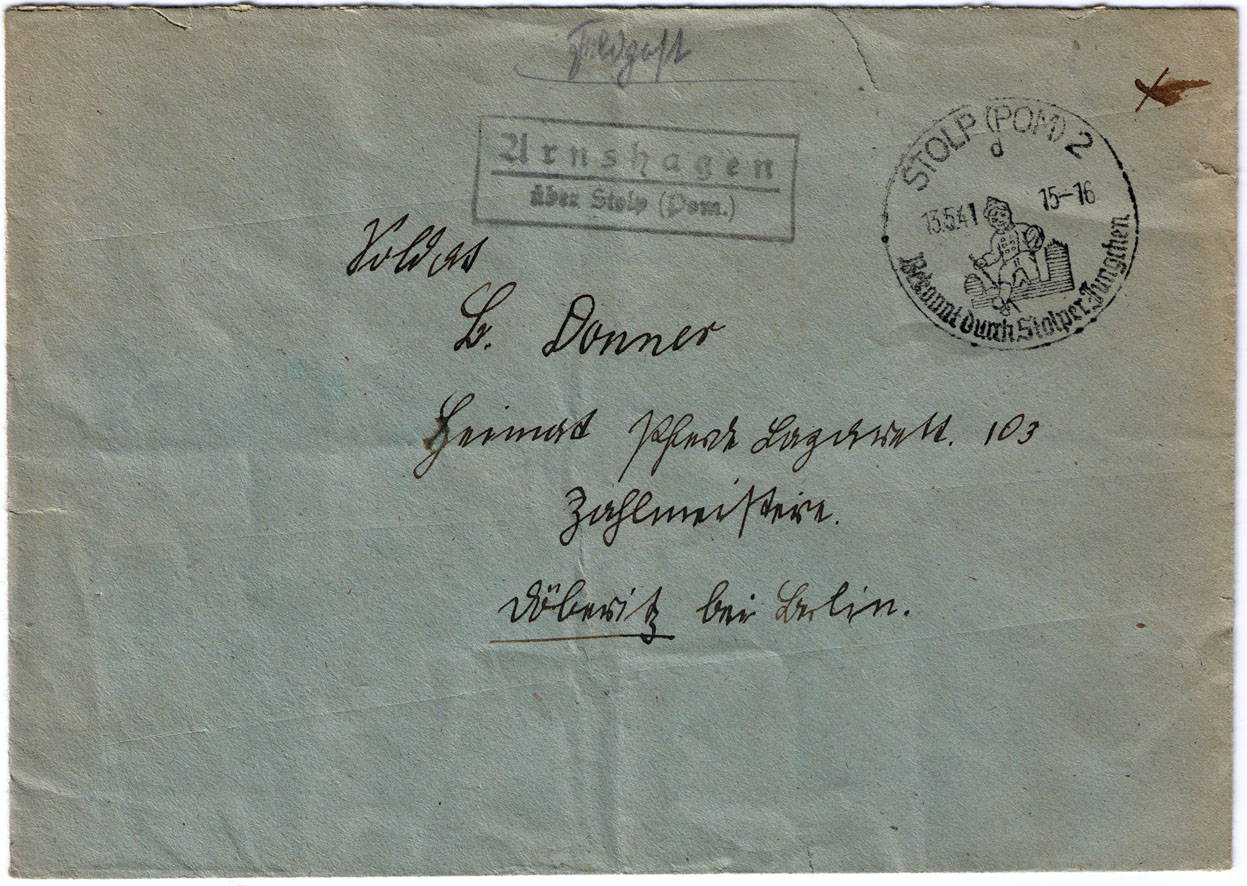 Feldpost
Arnshagen
über Stolp (Pom.)
STOLP (POM) 2
d
13.5.41 15-16
Bekannt durch Stolper Jungchen
Soldat
B. Donner
Heimat Pferde Lazarett. 103
Zahlmeisterei.
Döberitz bei Berlin.